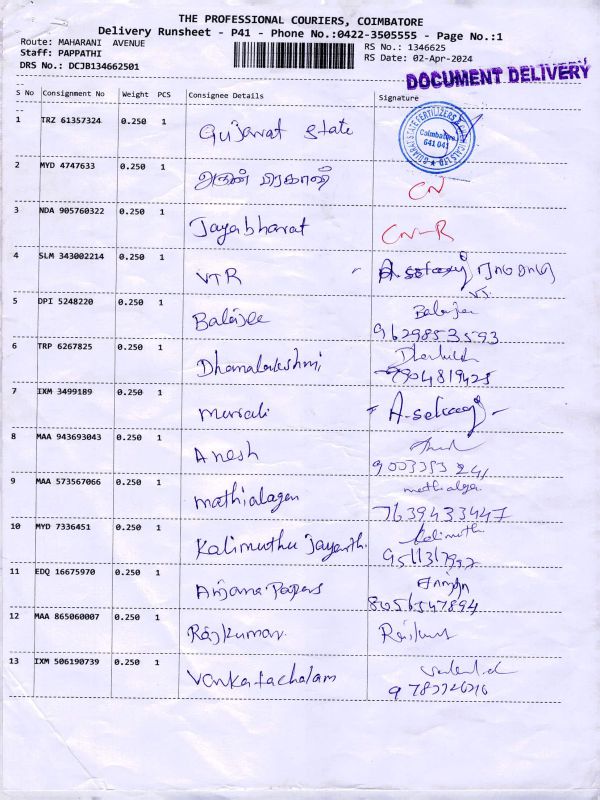 THE PROFESSIONAL COURIERS, COIMBATORE
Delivery Runsheet - P41 - Phone No.:0422-3505555 - Page No.:1
Route: MAHARANI AVENUE
RS No.: 1346625
Staff: PAPPATHI
RS Date: 02-Apr-2024
DRS No.: DCJB134662501
DOCUMENT DELIVERY
S No Consignment No Weight PCS Consignee Details Signature
1 TRZ 61357324 0.250 1 Gujarat State
Coimbatore 641 041
2 MYD 4747633 0.250 1 அருண் பிரகாஷ் CN
3 NDA 905760322 0.250 1 Jayabharat CN-R
4 SLM 343002214 0.250 1 VTR
5 DPI 5248220 0.250 1 Balajee Balajee
9629853593
6 TRP 6267825 0.250 1 Dhanalakshmi
9904819425
7 IXM 3499189 0.250 1 Murali
8 MAA 943693043 0.250 1 Anesh
9 MAA 573567066 0.250 1 mathialagan mathialgan
7639433447
10 MYD 7336451 0.250 1 Kalimuthu Jayanthi Kalimuth
11 EDQ 16675970 0.250 1 Anjana Papers
8056347894
12 MAA 865060007 0.250 1 Rajkumar
13 IXM 506190739 0.250 1 Venkatachalam